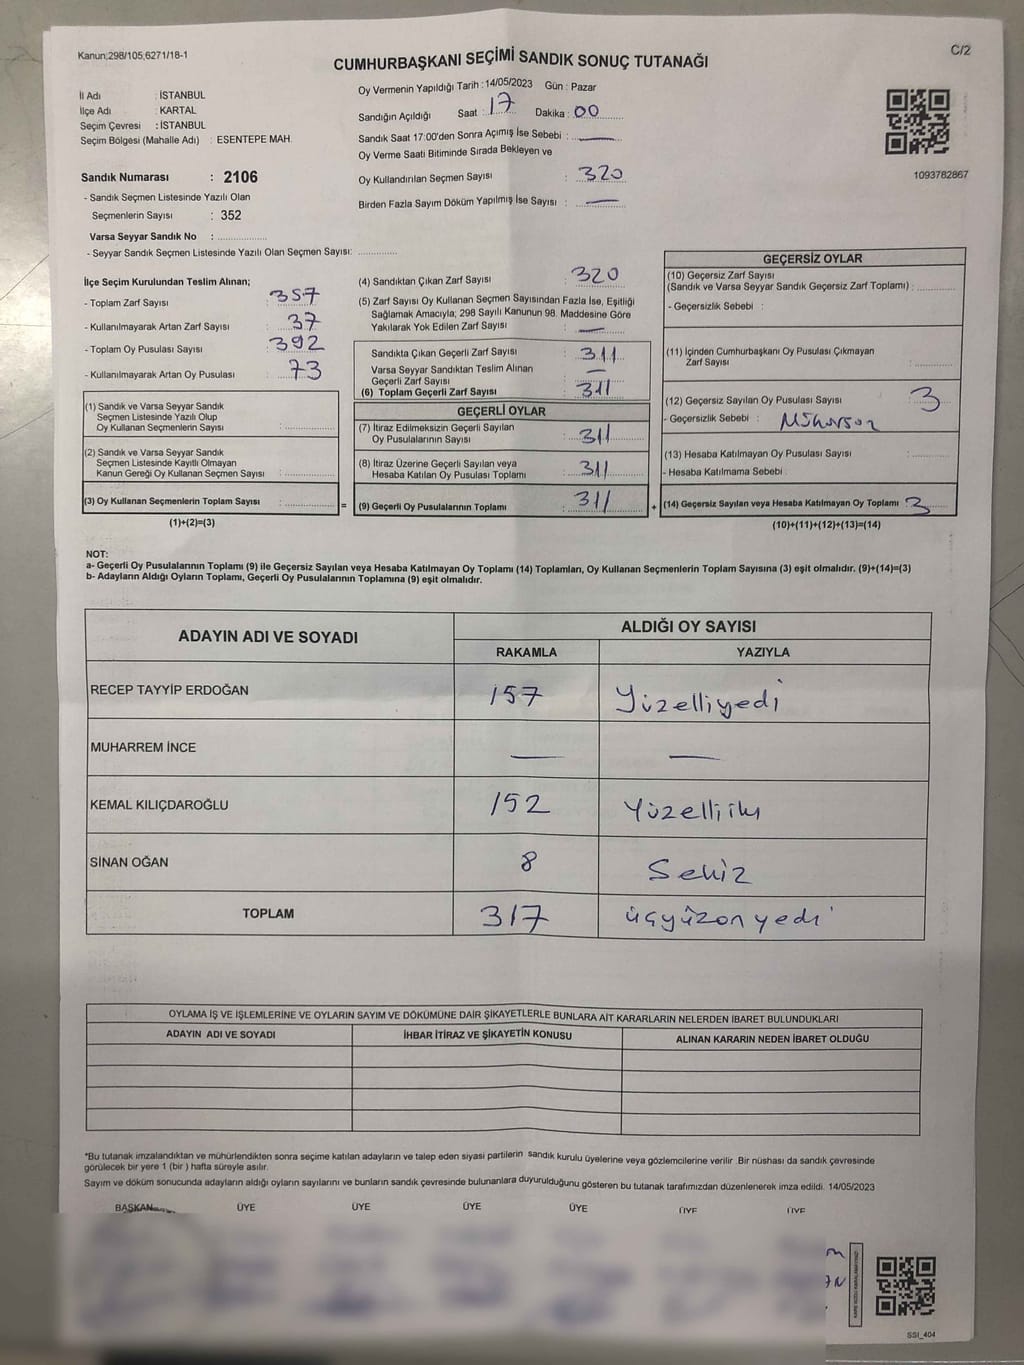 Kanun:298/105,6271/18-1
C/2
CUMHURBAŞKANI SEÇİMİ SANDIK SONUÇ TUTANAĞI
İl Adı : İSTANBUL
İlçe Adı : KARTAL
Seçim Çevresi : İSTANBUL
Seçim Bölgesi (Mahalle Adı) : ESENTEPE MAH.
Sandık Numarası : 2106
- Sandık Seçmen Listesinde Yazılı Olan
Seçmenlerin Sayısı : 352
Varsa Seyyar Sandık No :
- Seyyar Sandık Seçmen Listesinde Yazılı Olan Seçmen Sayısı:
Oy Vermenin Yapıldığı Tarih : 14/05/2023 Gün : Pazar
Sandığın Açıldığı Saat : 17 Dakika : 00
Sandık Saat 17:00'den Sonra Açımış İse Sebebi : —
Oy Verme Saati Bitiminde Sırada Bekleyen ve
Oy Kullandırılan Seçmen Sayısı : 320
Birden Fazla Sayım Döküm Yapılmış İse Sayısı : —
1093782867
İlçe Seçim Kurulundan Teslim Alınan;
- Toplam Zarf Sayısı : 357
- Kullanılmayarak Artan Zarf Sayısı : 37
- Toplam Oy Pusulası Sayısı : 392
- Kullanılmayarak Artan Oy Pusulası : 73
(1) Sandık ve Varsa Seyyar Sandık
Seçmen Listesinde Yazılı Olup
Oy Kullanan Seçmenlerin Sayısı :
(2) Sandık ve Varsa Seyyar Sandık
Seçmen Listesinde Kayıtlı Olmayan
Kanun Gereği Oy Kullanan Seçmen Sayısı :
(3) Oy Kullanan Seçmenlerin Toplam Sayısı : =
(1)+(2)=(3)
(4) Sandıktan Çıkan Zarf Sayısı : 320
(5) Zarf Sayısı Oy Kullanan Seçmen Sayısından Fazla İse, Eşitliği
Sağlamak Amacıyla; 298 Sayılı Kanunun 98. Maddesine Göre
Yakılarak Yok Edilen Zarf Sayısı : —
Sandıkta Çıkan Geçerli Zarf Sayısı : 311
Varsa Seyyar Sandıktan Teslim Alınan
Geçerli Zarf Sayısı : —
(6) Toplam Geçerli Zarf Sayısı : 311
GEÇERLİ OYLAR
(7) İtiraz Edilmeksizin Geçerli Sayılan
Oy Pusulalarının Sayısı : 311
(8) İtiraz Üzerine Geçerli Sayılan veya
Hesaba Katılan Oy Pusulası Toplamı : 311
(9) Geçerli Oy Pusulalarının Toplamı : 311 +
GEÇERSİZ OYLAR
(10) Geçersiz Zarf Sayısı
(Sandık ve Varsa Seyyar Sandık Geçersiz Zarf Toplamı) :
- Geçersizlik Sebebi :
(11) İçinden Cumhurbaşkanı Oy Pusulası Çıkmayan
Zarf Sayısı :
(12) Geçersiz Sayılan Oy Pusulası Sayısı : 3
- Geçersizlik Sebebi :
(13) Hesaba Katılmayan Oy Pusulası Sayısı :
- Hesaba Katılmama Sebebi :
(14) Geçersiz Sayılan veya Hesaba Katılmayan Oy Toplamı : 3
(10)+(11)+(12)+(13)=(14)
NOT:
a- Geçerli Oy Pusulalarının Toplamı (9) ile Geçersiz Sayılan veya Hesaba Katılmayan Oy Toplamı (14) Toplamları, Oy Kullanan Seçmenlerin Toplam Sayısına (3) eşit olmalıdır. (9)+(14)=(3)
b- Adayların Aldığı Oyların Toplamı, Geçerli Oy Pusulalarının Toplamına (9) eşit olmalıdır.
ADAYIN ADI VE SOYADI
ALDIĞI OY SAYISI
RAKAMLA YAZIYLA
RECEP TAYYİP ERDOĞAN 157 Yüzelliyedi
MUHARREM İNCE — —
KEMAL KILIÇDAROĞLU 152 Yüzelliiki
SİNAN OĞAN 8 Sekiz
TOPLAM 317 üçyüzonyedi
OYLAMA İŞ VE İŞLEMLERİNE VE OYLARIN SAYIM VE DÖKÜMÜNE DAİR ŞİKAYETLERLE BUNLARA AİT KARARLARIN NELERDEN İBARET BULUNDUKLARI
ADAYIN ADI VE SOYADI İHBAR İTİRAZ VE ŞİKAYETİN KONUSU ALINAN KARARIN NEDEN İBARET OLDUĞU
*Bu tutanak imzalandıktan ve mühürlendikten sonra seçime katılan adayların ve talep eden siyasi partilerin sandık kurulu üyelerine veya gözlemcilerine verilir. Bir nüshası da sandık çevresinde
görülecek bir yere 1 (bir ) hafta süreyle asılır.
Sayım ve döküm sonucunda adayların aldığı oyların sayılarını ve bunların sandık çevresinde bulunanlara duyurulduğunu gösteren bu tutanak tarafımızdan düzenlenerek imza edildi. 14/05/2023
BAŞKAN ÜYE ÜYE ÜYE ÜYE ÜYE ÜYE
SSI_404